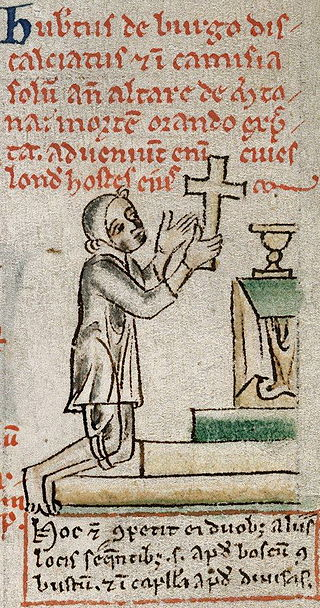 Hub̄tus de burgo dis/
calciatus ⁊ ī camisia
solū añ altare de Merto/
na: mortē orando exp̄c/
tat. adueniūt eni ciues
lond hostes eius
Hoc ⁊ ꝯtetit ei duobꝫ aliis
locis seq̄ntibꝫ .s. apđ boscū ꝯ
bustū. ⁊ ī capll'a apđ diuisas.